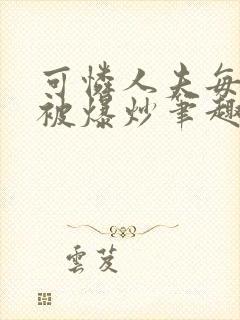 可憐人夫每
被爆炒筆趣
雲芨